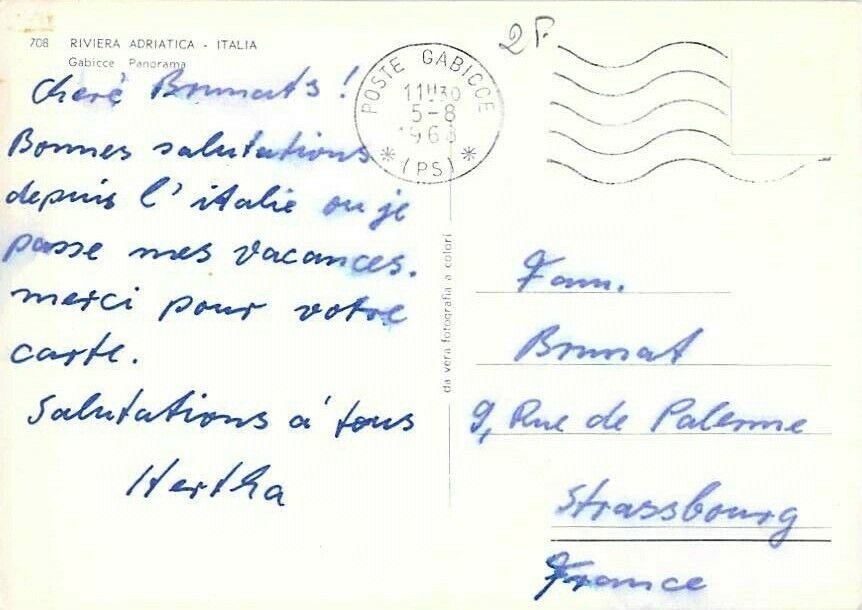 708 RIVIERA ADRIATICA - ITALIA
Gabicce Panorama
cherè Brumats !
Bonnes salutations
depuis l'italie ou je
passe mes vacances.
merci pour votre
carte.
Salutations á tous
Hertha
POSTE GABICCE
11H30
5-8
(PS)
2F.
da vera fotografia a colori
Fam.
Brumat
9, Rue de Palerme
Strassbourg
France